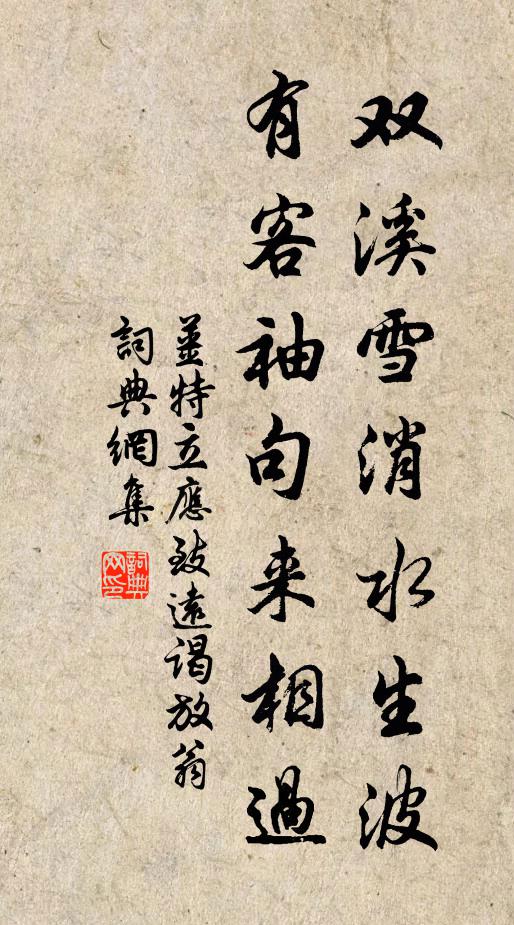 双溪雪消水生波
有客袖句来相過
薑特立應致遠謁放翁
詞典網集
詞典
网印